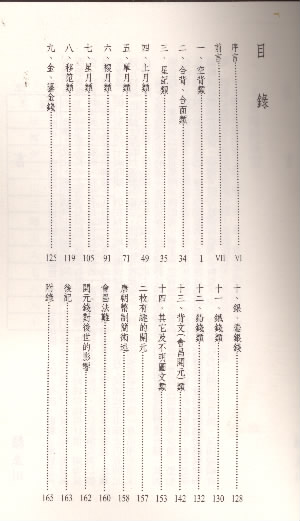 目錄
序言 VI
前言 VII
一、空背類 1
二、合背、合面類 34
三、星記類 35
四、上月類 49
五、單月類 71
六、複月類 91
七、星月類 105
八、移范類 119
九、金、鎏金錢 125
十、銀、鎏銀錢 128
十一、鐵錢類 130
十二、鉛錢類 132
十三、背文(會昌開元)類 142
十四、其它及不明圖文類 153
二枚有謎的開元 157
唐朝幣制簡術述 158
會昌法難 160
開元錢對後世的影響 162
後記 163
附錄 165